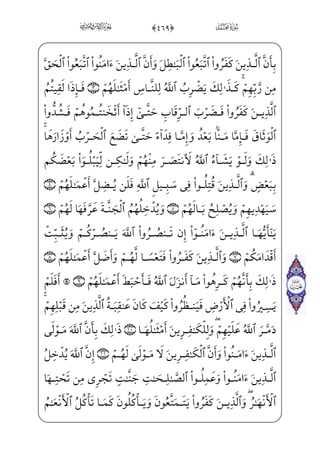 ﴿٤٦٩﴾
بِأَنَّ ٱلَّذِينَ كَفَرُوا۟ ٱتَّبَعُوا۟ ٱلْبَـٰطِلَ وَأَنَّ ٱلَّذِينَ ءَامَنُوا۟ ٱتَّبَعُوا۟ ٱلْحَقَّ
مِن رَّبِّهِمْ ۚ كَذَٰلِكَ يَضْرِبُ ٱللَّهُ لِلنَّاسِ أَمْثَـٰلَهُمْ ٣ فَإِذَا لَقِيتُمُ
ٱلَّذِينَ كَفَرُوا۟ فَضَرْبَ ٱلرِّقَابِ حَتَّىٰٓ إِذَآ أَثْخَنتُمُوهُمْ فَشُدُّوا۟
ٱلْوَثَاقَ فَإِمَّا مَنَّۢا بَعْدُ وَإِمَّا فِدَآءً حَتَّىٰ تَضَعَ ٱلْحَرْبُ أَوْزَارَهَا ۚ
ذَٰلِكَ وَلَوْ يَشَآءُ ٱللَّهُ لَٱنتَصَرَ مِنْهُمْ وَلَـٰكِن لِّيَبْلُوَا۟ بَعْضَكُم
بِبَعْضٍ ۗ وَٱلَّذِينَ قُتِلُوا۟ فِى سَبِيلِ ٱللَّهِ فَلَن يُضِلَّ أَعْمَـٰلَهُمْ ٤
سَيَهْدِيهِمْ وَيُصْلِحُ بَالَهُمْ ٥ وَيُدْخِلُهُمُ ٱلْجَنَّةَ عَرَّفَهَا لَهُمْ ٦
يَـٰٓأَيُّهَا ٱلَّذِينَ ءَامَنُوٓا۟ إِن تَنصُرُوا۟ ٱللَّهَ يَنصُرْكُمْ وَيُثَبِّتْ
أَقْدَامَكُمْ ٧ وَٱلَّذِينَ كَفَرُوا۟ فَتَعْسًا لَّهُمْ وَأَضَلَّ أَعْمَـٰلَهُمْ ٨
ذَٰلِكَ بِأَنَّهُمْ كَرِهُوا۟ مَآ أَنزَلَ ٱللَّهُ فَأَحْبَطَ أَعْمَـٰلَهُمْ ٩ ۞ أَفَلَمْ
يَسِيرُوا۟ فِى ٱلْأَرْضِ فَيَنظُرُوا۟ كَيْفَ كَانَ عَـٰقِبَةُ ٱلَّذِينَ مِن قَبْلِهِمْ ۚ
دَمَّرَ ٱللَّهُ عَلَيْهِمْ ۖ وَلِلْكَـٰفِرِينَ أَمْثَـٰلُهَا ١٠ ذَٰلِكَ بِأَنَّ ٱللَّهَ مَوْلَى
ٱلَّذِينَ ءَامَنُوا۟ وَأَنَّ ٱلْكَـٰفِرِينَ لَا مَوْلَىٰ لَهُمْ ١١ إِنَّ ٱللَّهَ يُدْخِلُ
ٱلَّذِينَ ءَامَنُوا۟ وَعَمِلُوا۟ ٱلصَّـٰلِحَـٰتِ جَنَّـٰتٍ تَجْرِى مِن تَحْتِهَا
ٱلْأَنْهَـٰرُ ۖ وَٱلَّذِينَ كَفَرُوا۟ يَتَمَتَّعُونَ وَيَأْكُلُونَ كَمَا تَأْكُلُ ٱلْأَنْعَـٰمُ